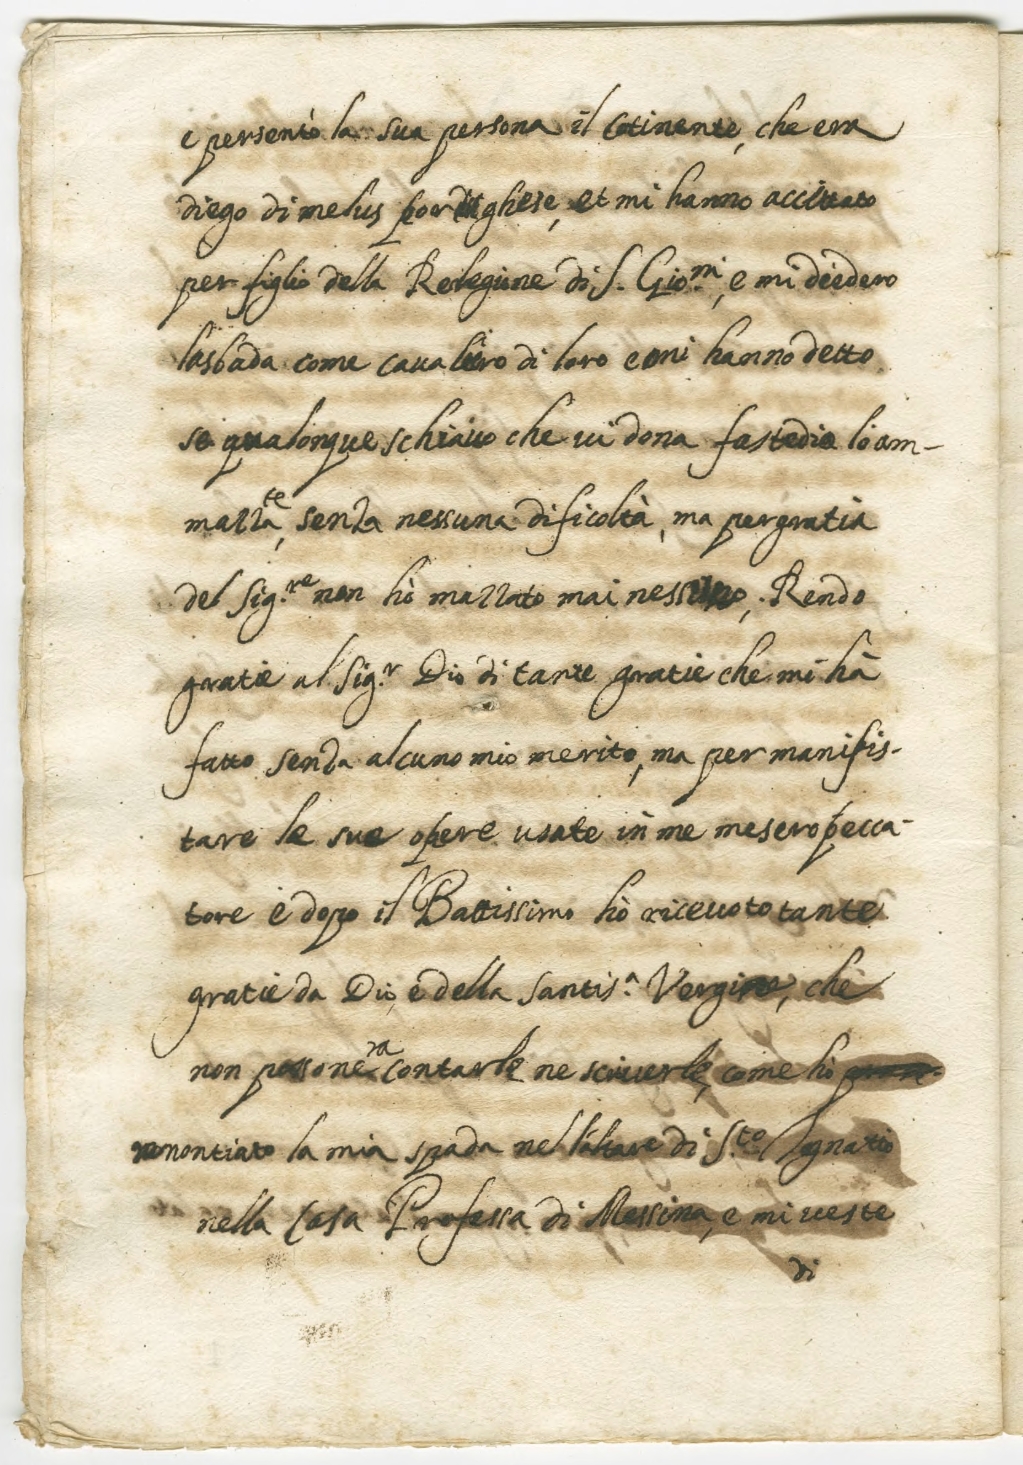 e persentò la sua persona il Cotinente, che era
diego di melus portughese, et mi hanno accittato
per figlio della Relegione di S. Gio.ni, e mi diedero
lasbada come cavaliero di loro e mi hanno detto
se qualonque schiavo che vi dona fastedio lo am-
mazzate, senza nessuna dificoltà, ma per gratia
del Sig.re non hò mazzato mai nessuno, Rendo
gratie al Sig.r Dio di tante gratie che mi hà
fatto senza alcuno mio merito, ma per manifis-
tare le sue opere usate in me mesero pecca-
tore e dopo il Battissimo hò ricevoto tante
gratie da Dio, e della Santis.a Vergine, che
non possonera contarle ne scriverle, come ho
renontiato la mia spada nell'altare di S.to Ignatio
nella Casa Professa di Messina, e mi veste
di